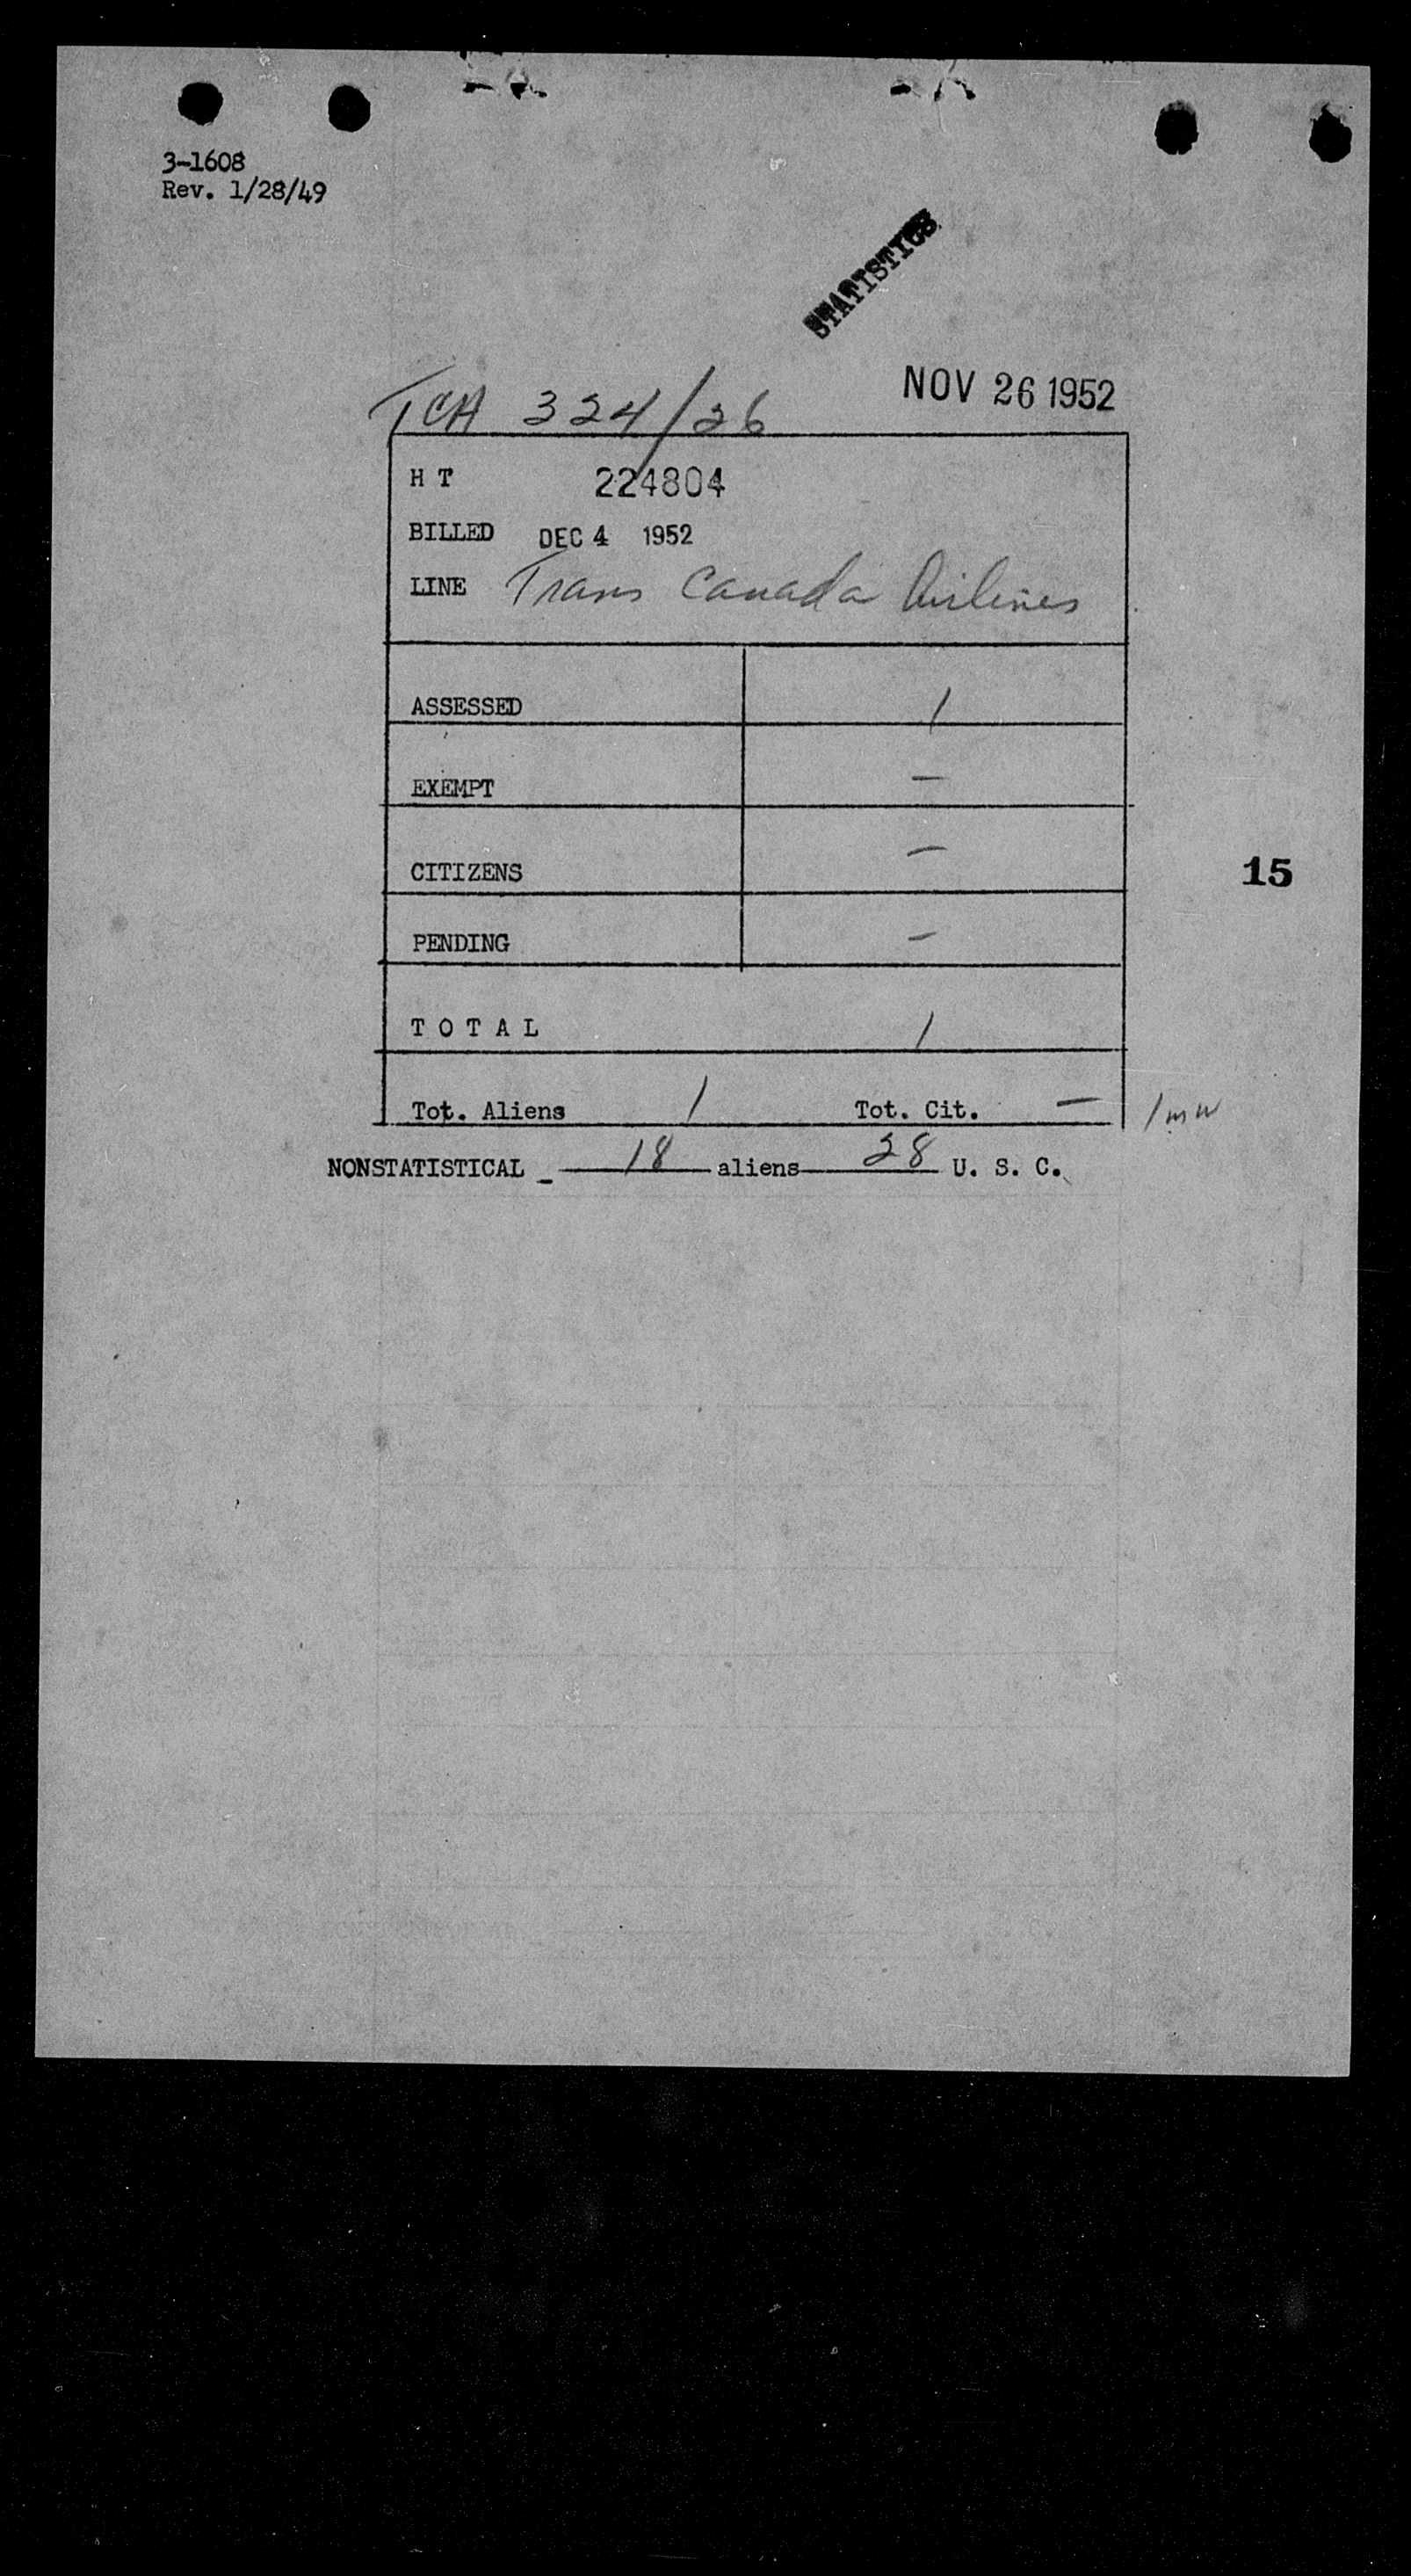 3-1608
Rev. 1/28/49
STATISTICS
NOV 26 1952
TCA 324/26
H T 224804
BILLED DEC 4 1952
LINE Trans Canada Airlines
ASSESSED 1
EXEMPT —
CITIZENS —
15
PENDING —
T O T A L 1
Tot. Aliens 1 Tot. Cit. — 1 mw
NONSTATISTICAL - 18 aliens 28 U. S. C.